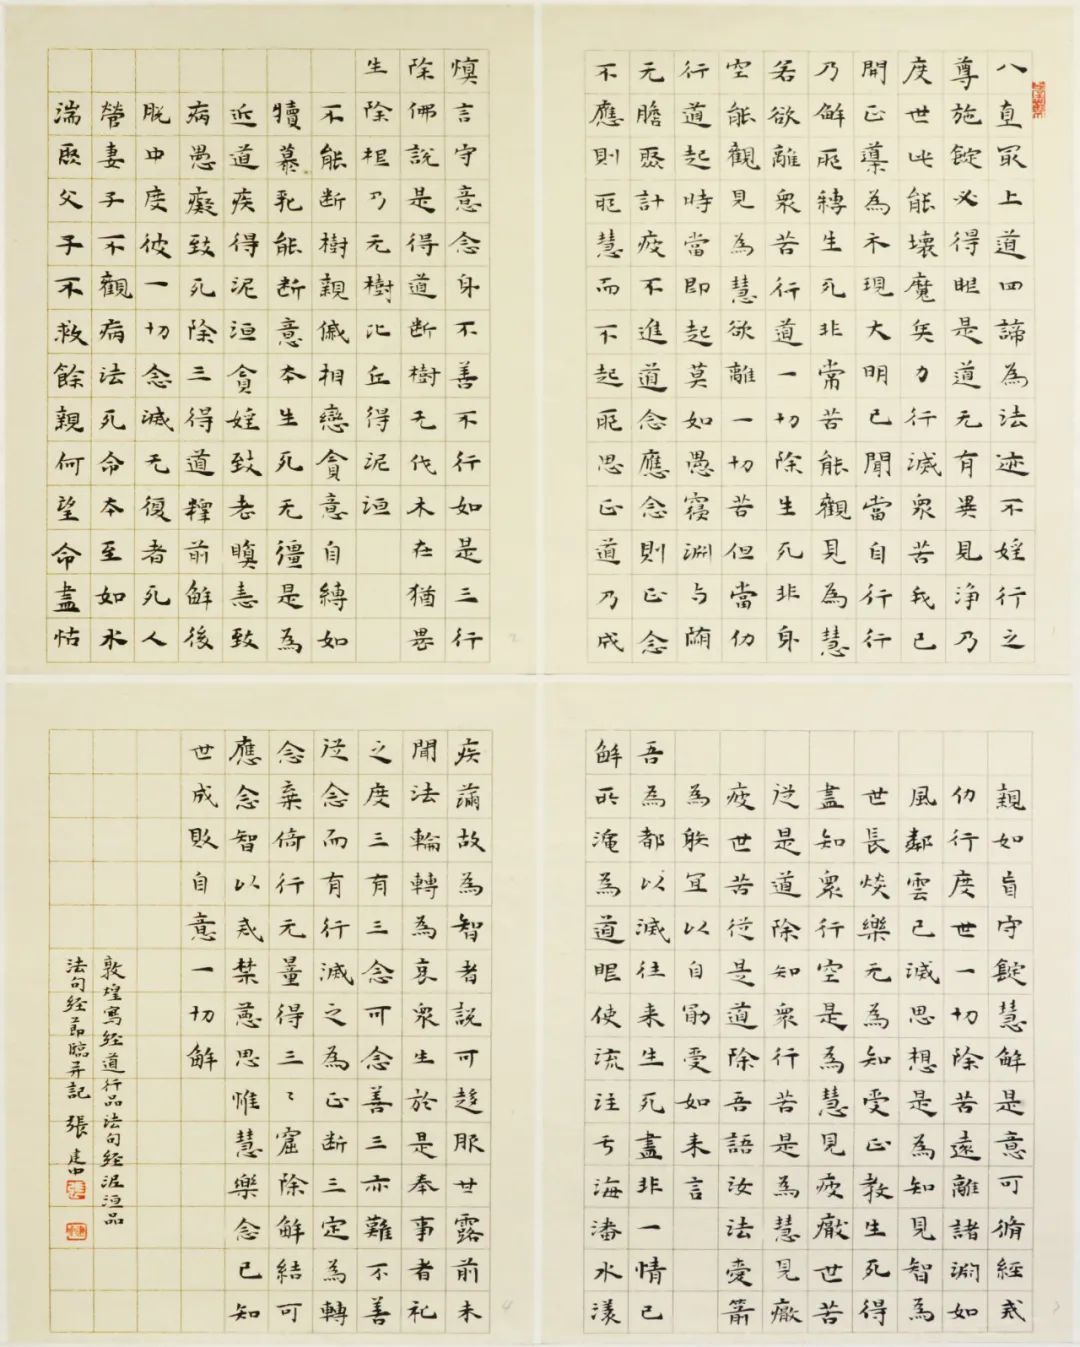 八直最上道四諦為法迹不婬行之
尊施錠必得眼是道无有異見淨乃
度世此能壞魔兵力行滅眾苦我已
開正導為不現大明已聞當自行行
乃解所縛生死非常苦能觀見為慧
若欲離衆苦行道一切除生死非身
空能觀見為慧欲離一切苦但當仂
行道起時當即起莫如愚寑淵与
无瞻聚計疲不進道念應念則正念
不應則邪慧而不起邪思正道乃成
慎言守意念身不善不行如是三行
除佛說是得道斷樹无伐木在猶畏
生除根乃无樹比丘得泥洹
不能断樹親慼相戀貪意自縛如
犢慕乳能断意本生死无彊是為
近道疾得泥洹貪婬致老瞋恚致
病愚癡致死除三得道釋前解後
脫中度彼一切念滅无復者死人
營妻子不觀病法死命本至如水
湍聚父子不救餘親何望命盡怙
親如盲守錠慧解是意可脩經戒
仂行度世一切除苦遠離諸淵如
風鄰雲已滅思想是為知見智為
世長樂无為知受正教生死得
盡知衆行空是為慧見疲厭世苦
從是道除知衆行苦是為慧見
疲世苦從是道除吾語汝法愛箭
為躰冝以自勗受如来言
吾為都以滅往来生死盡非一情已
解所淹為道眼使流注亐海潘水漾
疾滿故為智者說可趍服甘露前未
聞法輪轉為哀衆生於是奉事者礼
之度三有三念可念善三亦難不善
從念而有行滅之為正断三定為轉
念棄倚行无量得三〻窟除解結可
應念智以戒禁慧思惟慧樂念已知
世成敗自意一切解
敦煌寫經道行品法句經泥洹品
法句經節臨并記 張建中